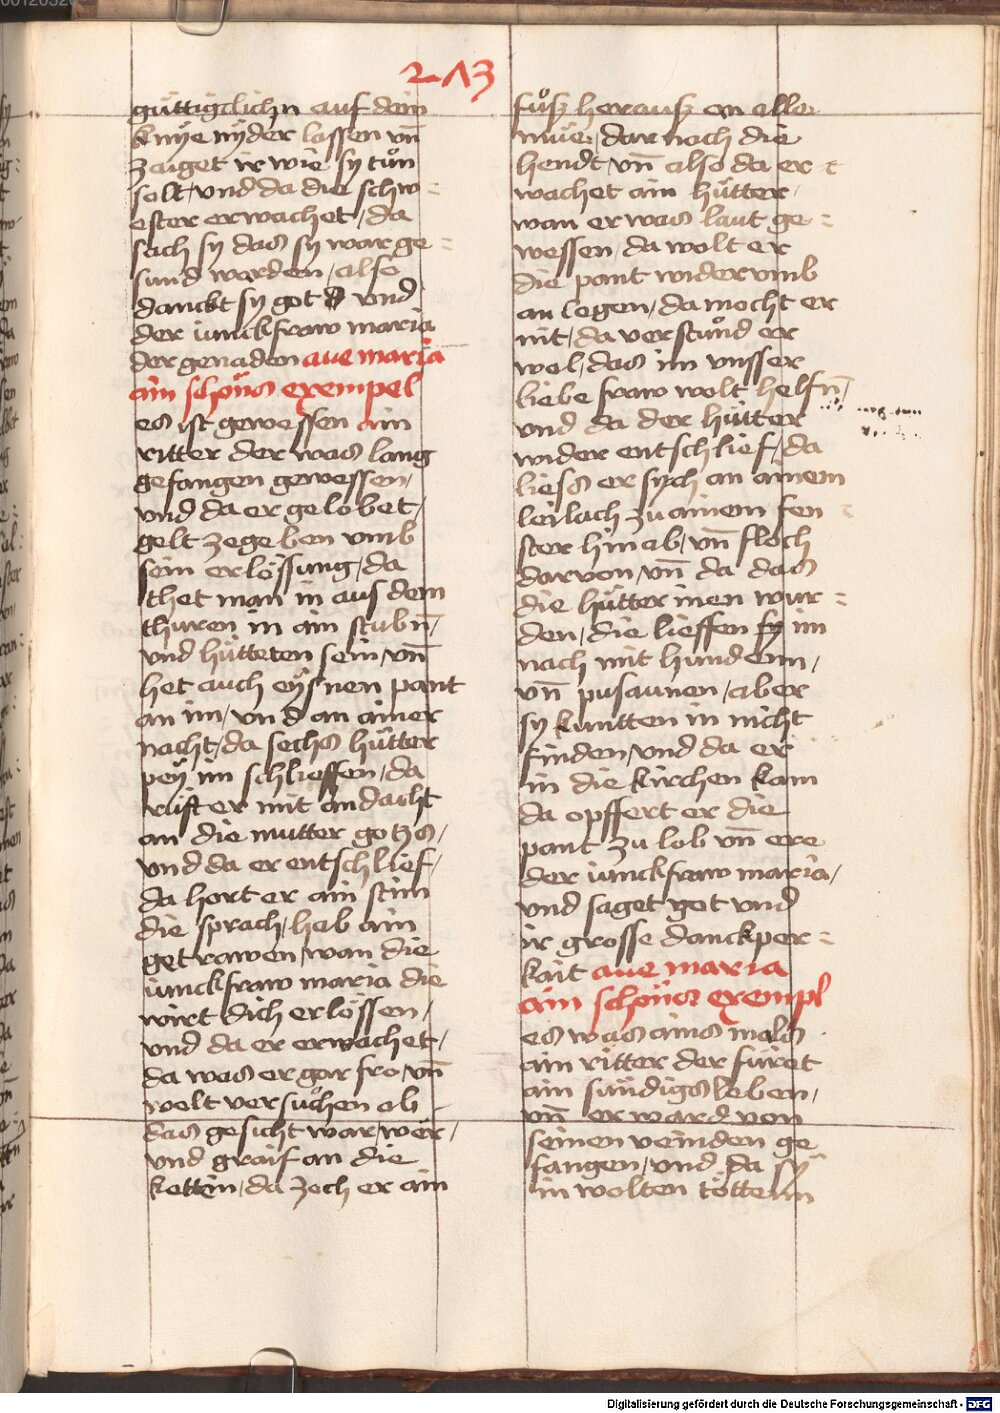 213
güttigclichn auf dein
knye nyder lassen vn̄
zaiget ir wie sy tuͦn
solt / vnd da die schw=
ester erwachet / da
sach sy das sy war ge=
sund worden / also
danckt sy got vnd
der iunckfraw maria
der genaden aue maria
ain schöns exempel
es ist gewessen ain
ritter der was lang
gefangen gewessen /
vnd da er gelobet /
gelt ze geben vmb
sein erlössung / da
thet man in aus dem
thuren in ain stubn̄ /
vnd hütteten sein / vn̄
het auch eysnen pant
an im / vnd an ainer
nacht / da sechs hütter
pey im schlieffen / da
ruft er mit andacht
an die mutter gotzs /
vnd da er entschlief /
da hort er ain stim
die sprach / hab ain
getrawen / wan die
iunckfraw maria die
wirt dich erlössen /
vnd da er erwachet /
da was er gar fro / vn̄
wolt versuͦchen ob
das gesicht war wer /
vnd graif an die
ketten / da zoch er ain
fuͦsz herausz on alle
müe / dar nach die
hendt / vn̄ also da er=
wachet ain hütter /
wan er was laut ge=
wessen / da wolt er
die pant widervmb
an legen / da mocht er
nit / da verstuͦnd er
wol / das im vnsser
liebe fraw wolt helfn̄ /
vnd da der hütter
wider entschlief / da
liess er sych an ainem
leilach zu ainem fen=
ster hinab / vn̄ floch
darvon / vn̄ da das
die hütter inen wur=
den / die lieffen sy im
nach mit hundenn /
vn̄ pusaunen / aber
sy kuntten in nicht
finden / vnd da er
in die kirchen kam
da opffert er die
pant zu lob vn̄ ere
der iunckfraw maria /
vnd saget got vnd
ir grosse danckper=
kait aue maria
ain schöns exempl
es was ains mals
ain ritter der füret
ain sündigs leben /
vn̄ er ward von
seinen veinden ge
fangen / vnd da sy
in wolten töttenn
Digitalisierung gefördert durch die Deutsche Forschungsgemeinschaft - DFG